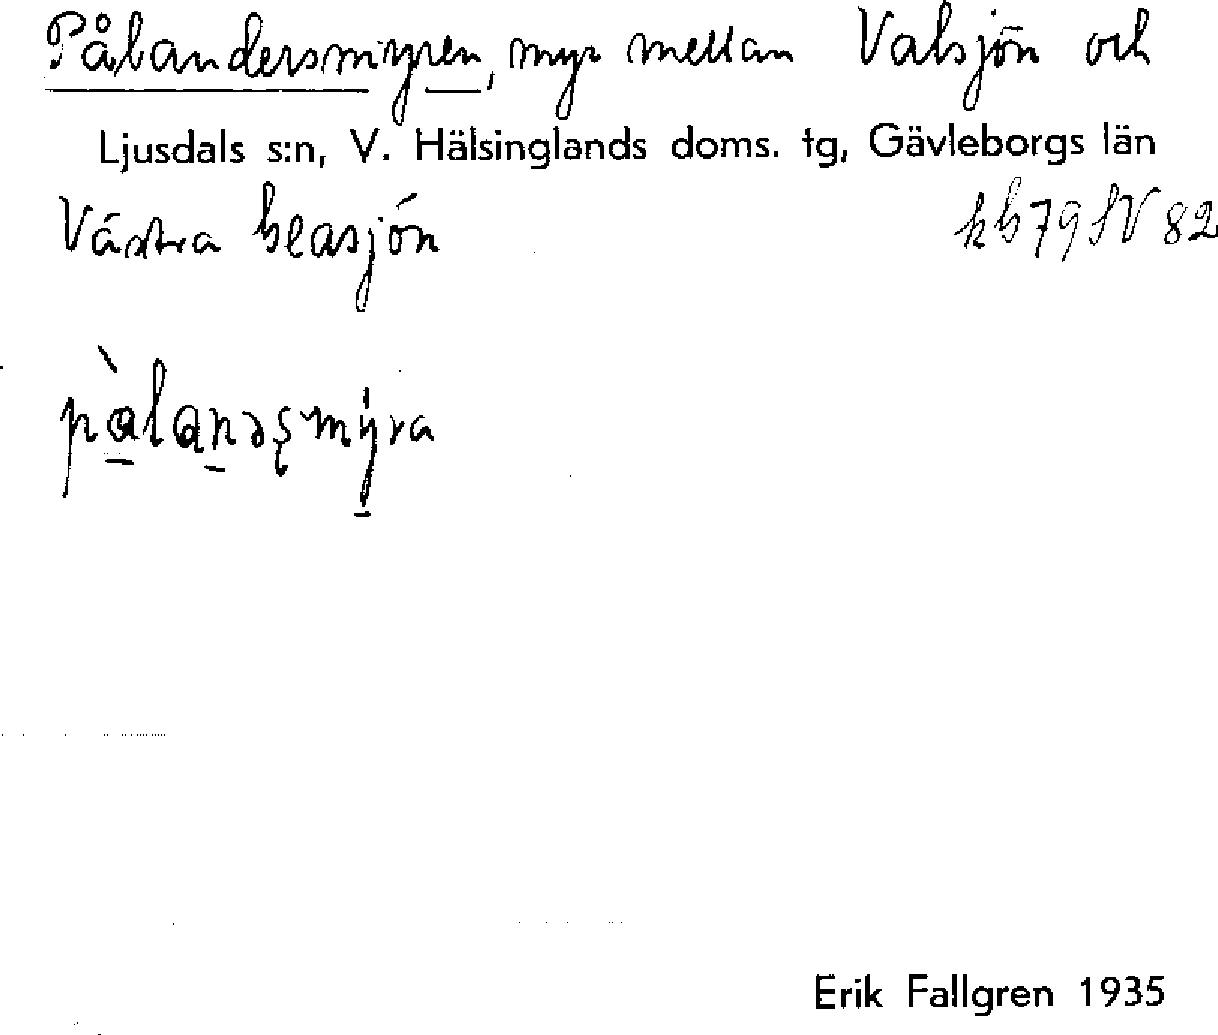 Pålandersmyren, myr mellan Valsjön och
Ljusdals s:n, V. Hälsinglands doms. tg, Gävleborgs län
Västra blasjön
kb 79 SV 82
Erik Fallgren 1935